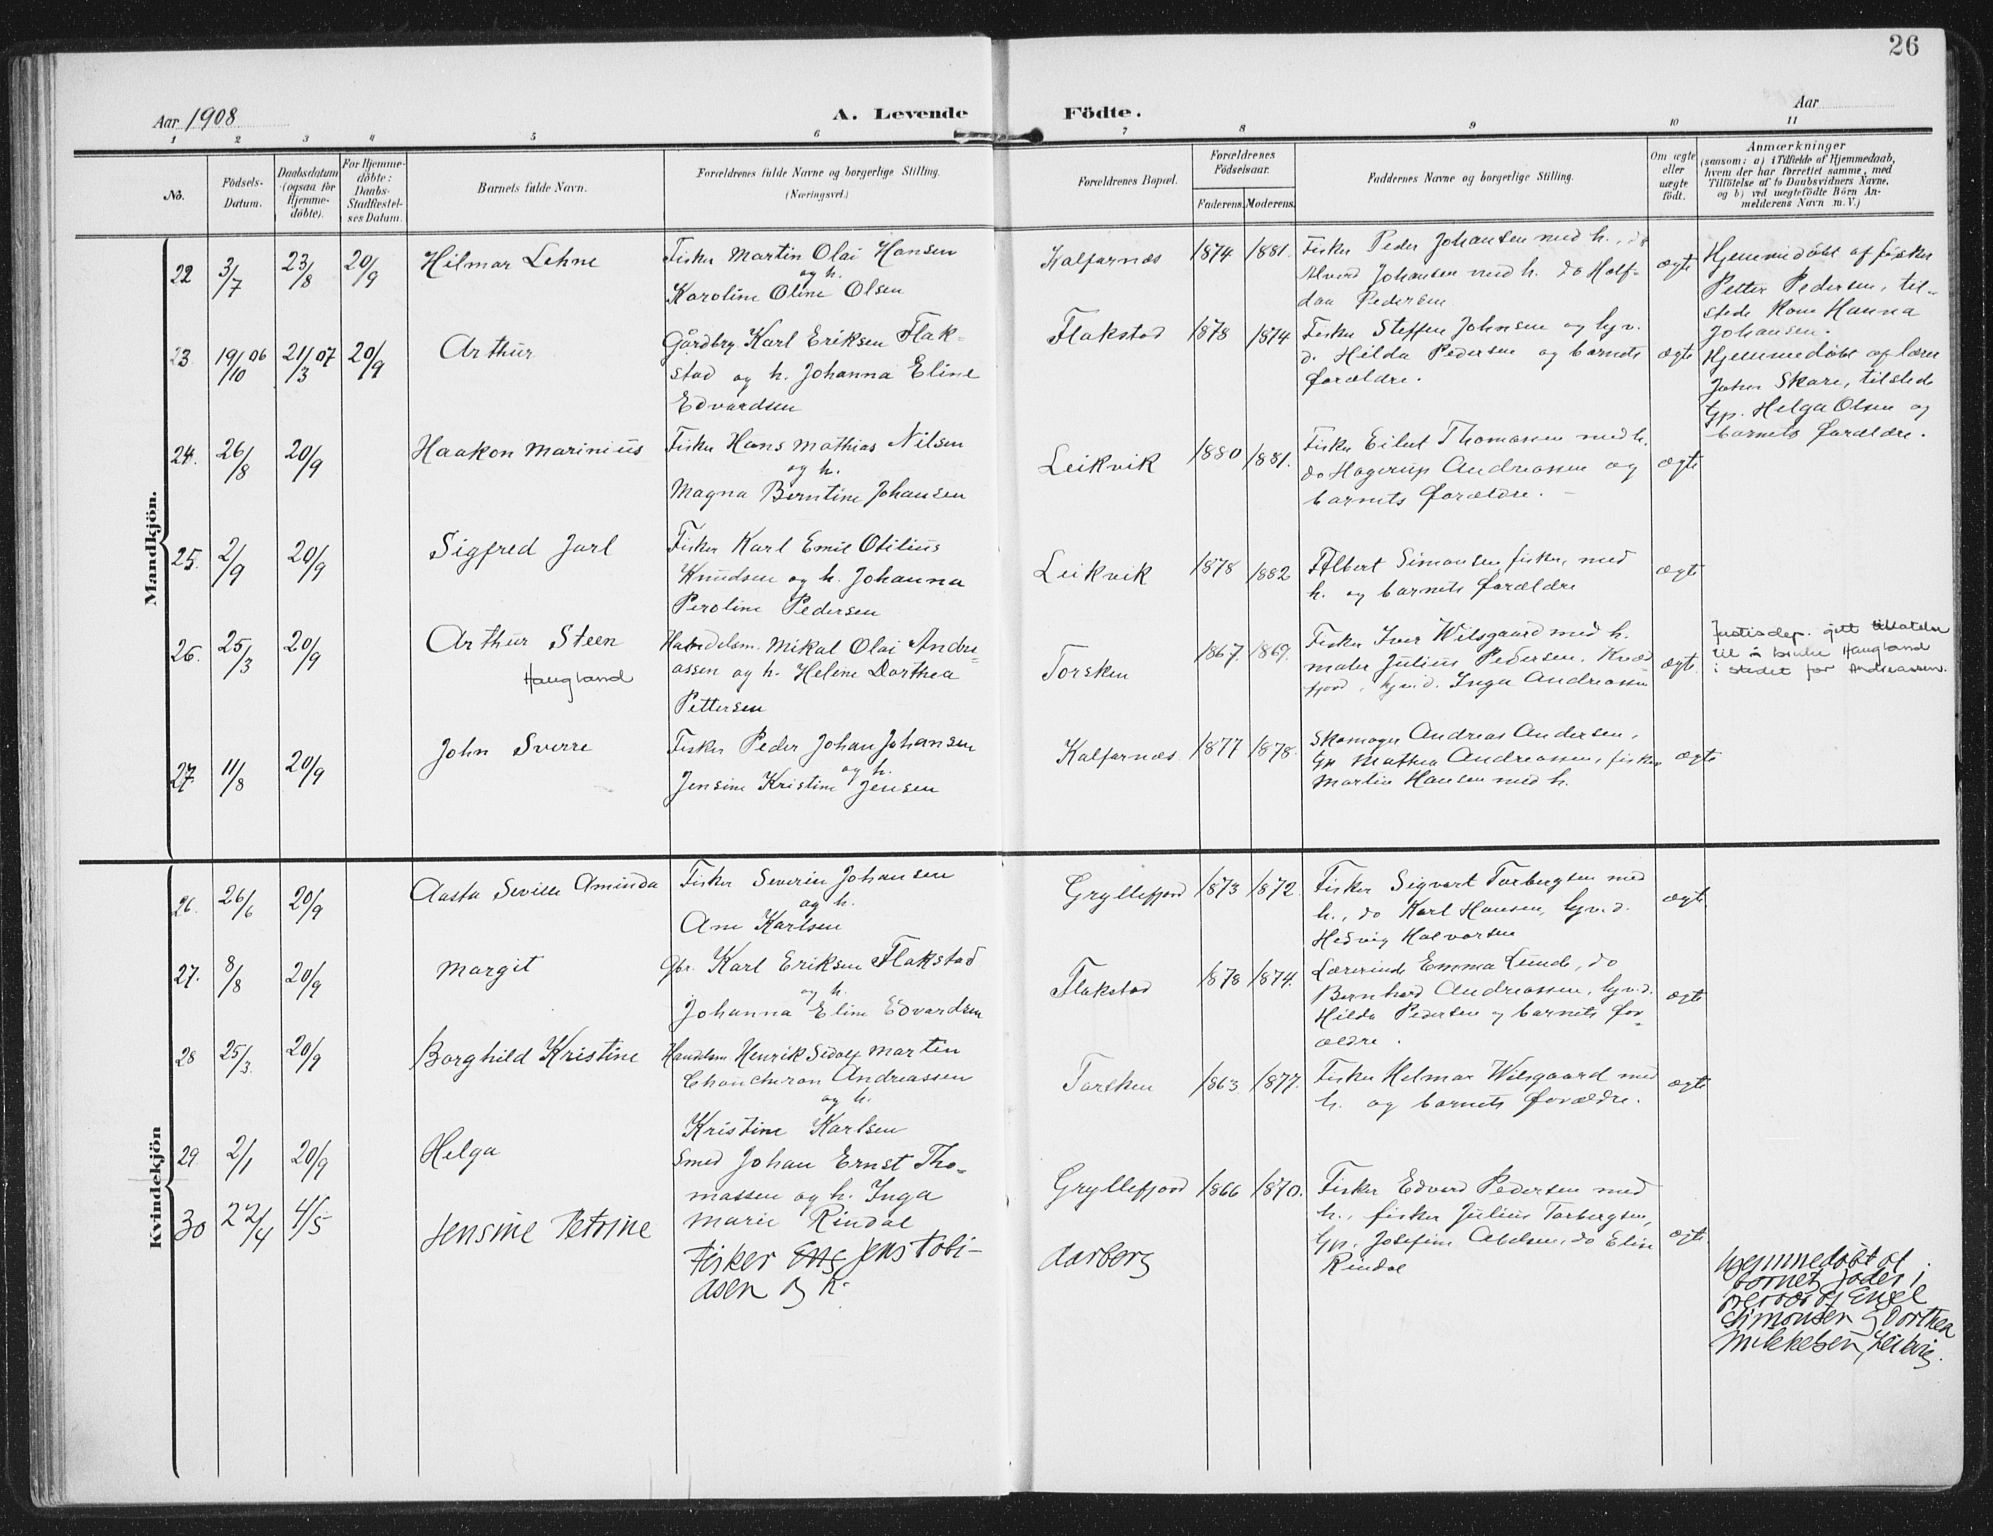 26
Aar 1908
A. Levende Födte.
Aar
1 2 3 4 5 6 7 8 9 10 11
No.
Födsels-Datum.
Daabsdatum (ogsaa for Hjemme-döbte).
For Hjemme-döbte: Daabs-Stadfæstel-ses Datum.
Barnets fulde Navn.
Forældrenes fulde Navne og borgerlige Stilling. (Næringsvei.)
Forældrenes Bopæl.
Forældrenes Födselsaar.
Faderens. Moderens.
Faddernes Navne og borgerlige Stilling.
Om ægte eller uægte födt.
Anmærkninger
(saasom: a) i Tilfælde af Hjemmedaab,
hvem der har forrettet samme, med
Tilföielse af to Daabsvidners Navne,
og b) ved uægtefödte Börn An-
melderens Navn m. V.)
Mandkjön.
22 3/7 23/8 20/9 Hilmar Lehne
Fisker Martin Olai Hansen
og h.
Karoline Oline Olsen
Kalfarnæs 1874 1881.
Fisker Peder Johansen med h., do
Alverd Johansen med h. do Half-
dan Pedersen
ægte
Hjemmedøbt af fisker
Petter Pedersen, til-
stede Kone Hanna
Johansen.
23 19/10 06 21/3 07 20/9 Arthur
Gårdbr. Karl Eriksen Flak-
stad og h. Johanna Eline
Edvardsen
Flakstad 1878 1874
Fisker Steffen Johnsen og hv.
d. Hilda Pedersen og barnets
forældre.
ægte
Hjemmedøbt af lærer
Johan Skare, tilstede
Gp. Helga Olsen og
barnets forældre.
24. 26/8 20/9 Haakon Marinius
Fisker Hans Mathias Nilsen
og h.
Magna Berntine Johansen
Leikvik 1880 1881.
Fisker Eilert Thomassen med h.
do Hagerup Andreassen og
barnets forældre. -
ægte
25. 2/9 20/9 Sigfred Jarl
Fisker Karl Emil Otilius
Knudsen og h. Johanna
Peroline Pedersen
Leikvik 1878 1882
Albert Simonsen fisker, med
h. og barnets forældre
ægte
26. 25/3 20/9 Arthur Steen
Haugland
Handelsm. Mikal Olai Andre-
assen og h. Heline Dorthea
Pettersen
Torsken 1867. 1869.
Fisker Iver Wilsgaard med h.
maler Julius Pedersen, Kvæd-
fjord, Inga Andreassen
ægte.
Justisdep. gitt tillatelse
til å bruke Haugland
i stedet for Andreassen.
27. 11/8 20/9 John Sverre
Fisker Peder Johan Johansen
og h.
Jensine Kristine Jensen
Kalfarnæs 1877 1878.
Skomager Andreas Andersen,
Gp Mathea Andreassen, fisker
Martin Hansen med h.
ægte
Kvindekjön
26. 26/6 20/9 Aasta Seville Aminda
Fisker Severin Johansen
og h.
Ane Karlsen
Gryllefjord 1873 1872.
Fisker Sigvart Torbergsen med
h., do Karl Hansen,
Hedvig Halvorsen
ægte
27. 8/8 20/9 Margit
Gbr. Karl Eriksen Flakstad
og h.
Johanna Eline Edvardsen
Flakstad 1878 1874.
Lærerinde Emma Lunde, do
Bernhard Andreassen,
Hilda Pedersen og barnets for-
ældre.
ægte
28 25/3. 20/9 Borghild Kristine
Handelsm. Henrik Sidolf Martin
Andreassen
og h.
Kristine Karlsen
Torsken 1863 1877.
Fisker Helmar Wilsgaard med
h. og barnets forældre.
ægte
29. 2/1 20/9 Helga
Smed Johan Ernst Tho-
massen og h. Inga
Marie Rindal
Gryllefjord 1866 1870.
Fisker Edvard Pedersen med
h., fisker Julius Torbergsen,
Gp. Josefine Abelsen, do Elin
Rindal
ægte
30 22/4 4/5 Jensine Petrine
Fisker Jens Tobi-
asen og h.
Aarberg
Hjemmedøbt af
barnets fader i
nærvær af Engel
Simonsen og Dorthea
Mikkelsen, Leikvig.